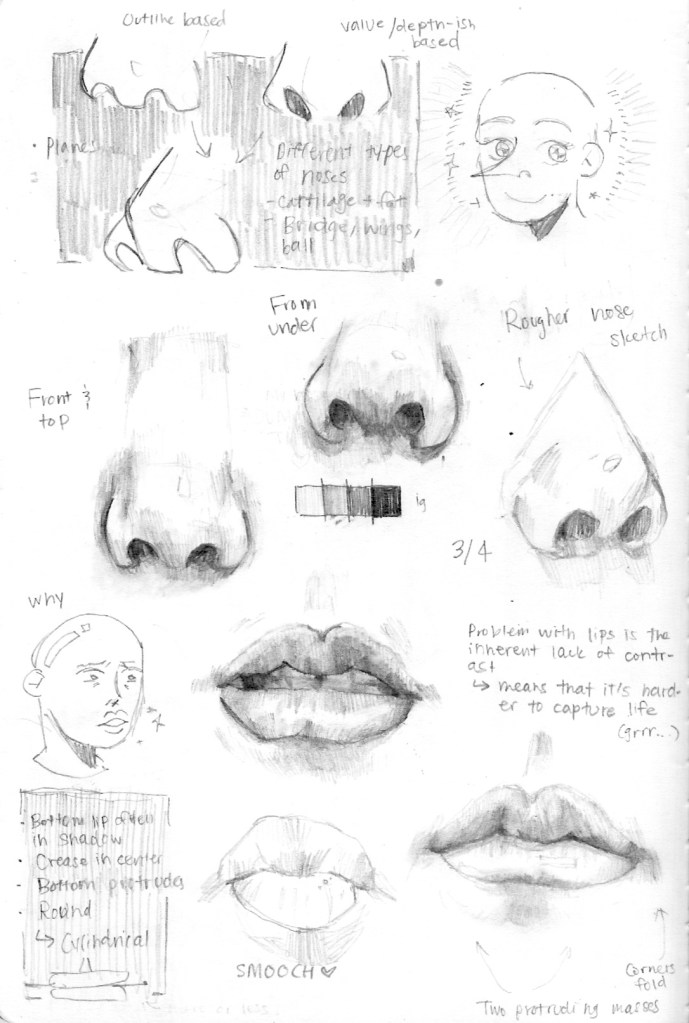 Outline based
value/depth-ish
based
• Planes
Different types
of noses
- cartilage + fat
- Bridge, wings,
ball
From
under
Rougher nose
sketch
Front &
top
ig
3/4
why
Problem with lips is the
inherent lack of contr-
ast
↳ means that it's hard-
er to capture life
(grrr...)
• Bottom lip often
in shadow
• Crease in center
• Bottom protrudes
• Round
↳ Cylindrical
SMOOCH ♥
Corners
fold
Two protruding masses